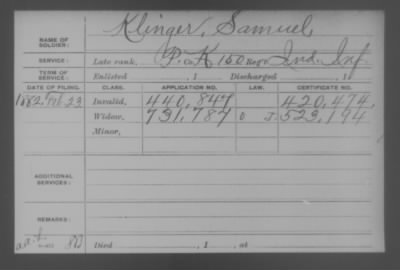 NAME OF SOLDIER: Klinger, Samuel
SERVICE: Late rank, P. Co. K 150 Reg't Ind. Inf
TERM OF SERVICE: Enlisted , 1 Discharged , 1
DATE OF FILING. CLASS. APPLICATION NO. LAW. CERTIFICATE NO.
1882. Feb. 23 Invalid, 440,847 420,474
Widow, 731,787 J. 523,194
Minor,
ADDITIONAL SERVICES:
REMARKS:
Died , 1 , at